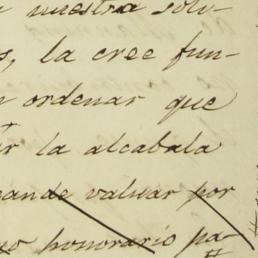 nuestra solv-
s, la cree fun-
ordenar que
ar la alcabala
mande valuar por
honorario pa-